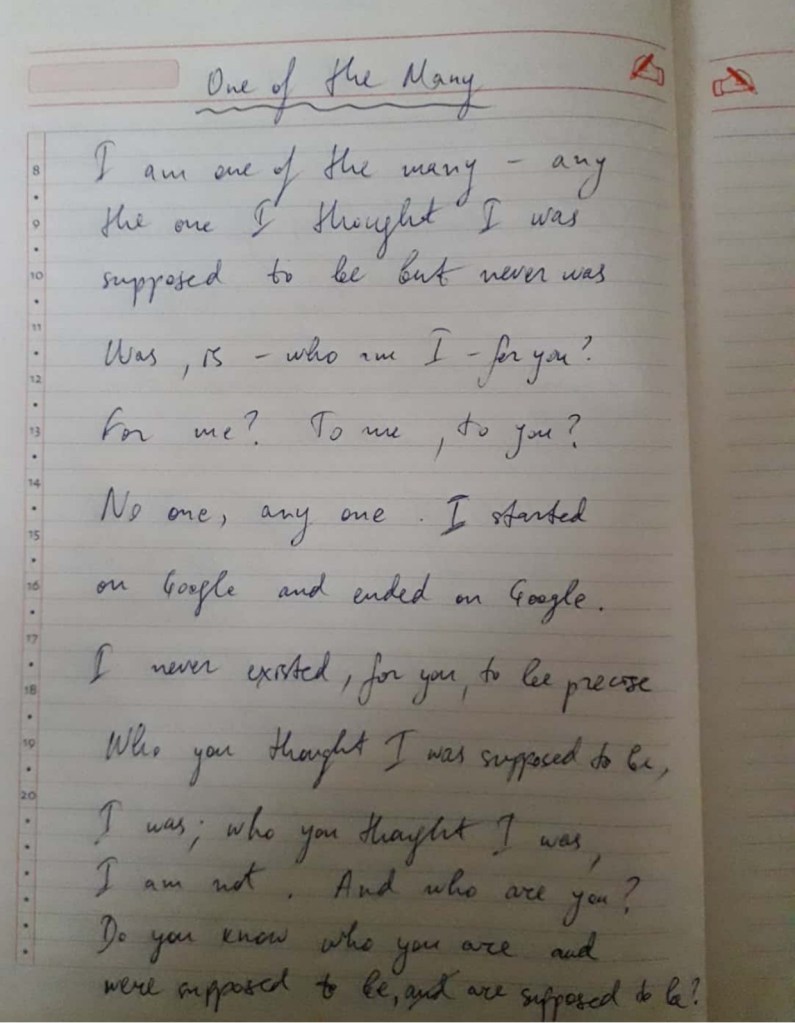 One of the Many
I am one of the many – any
8
the one I thought I was
9
supposed to be but never was
10
11
Was, is – who am I – for you?
12
For me? To me, to you?
13
14
No one, any one. I started
15
on Google and ended on Google.
16
17
I never existed, for you, to be precise
18
Who you thought I was supposed to be,
19
20
I was; who you thought I was,
I am not. And who are you?
Do you know who you are and
were supposed to be, and are supposed to be?